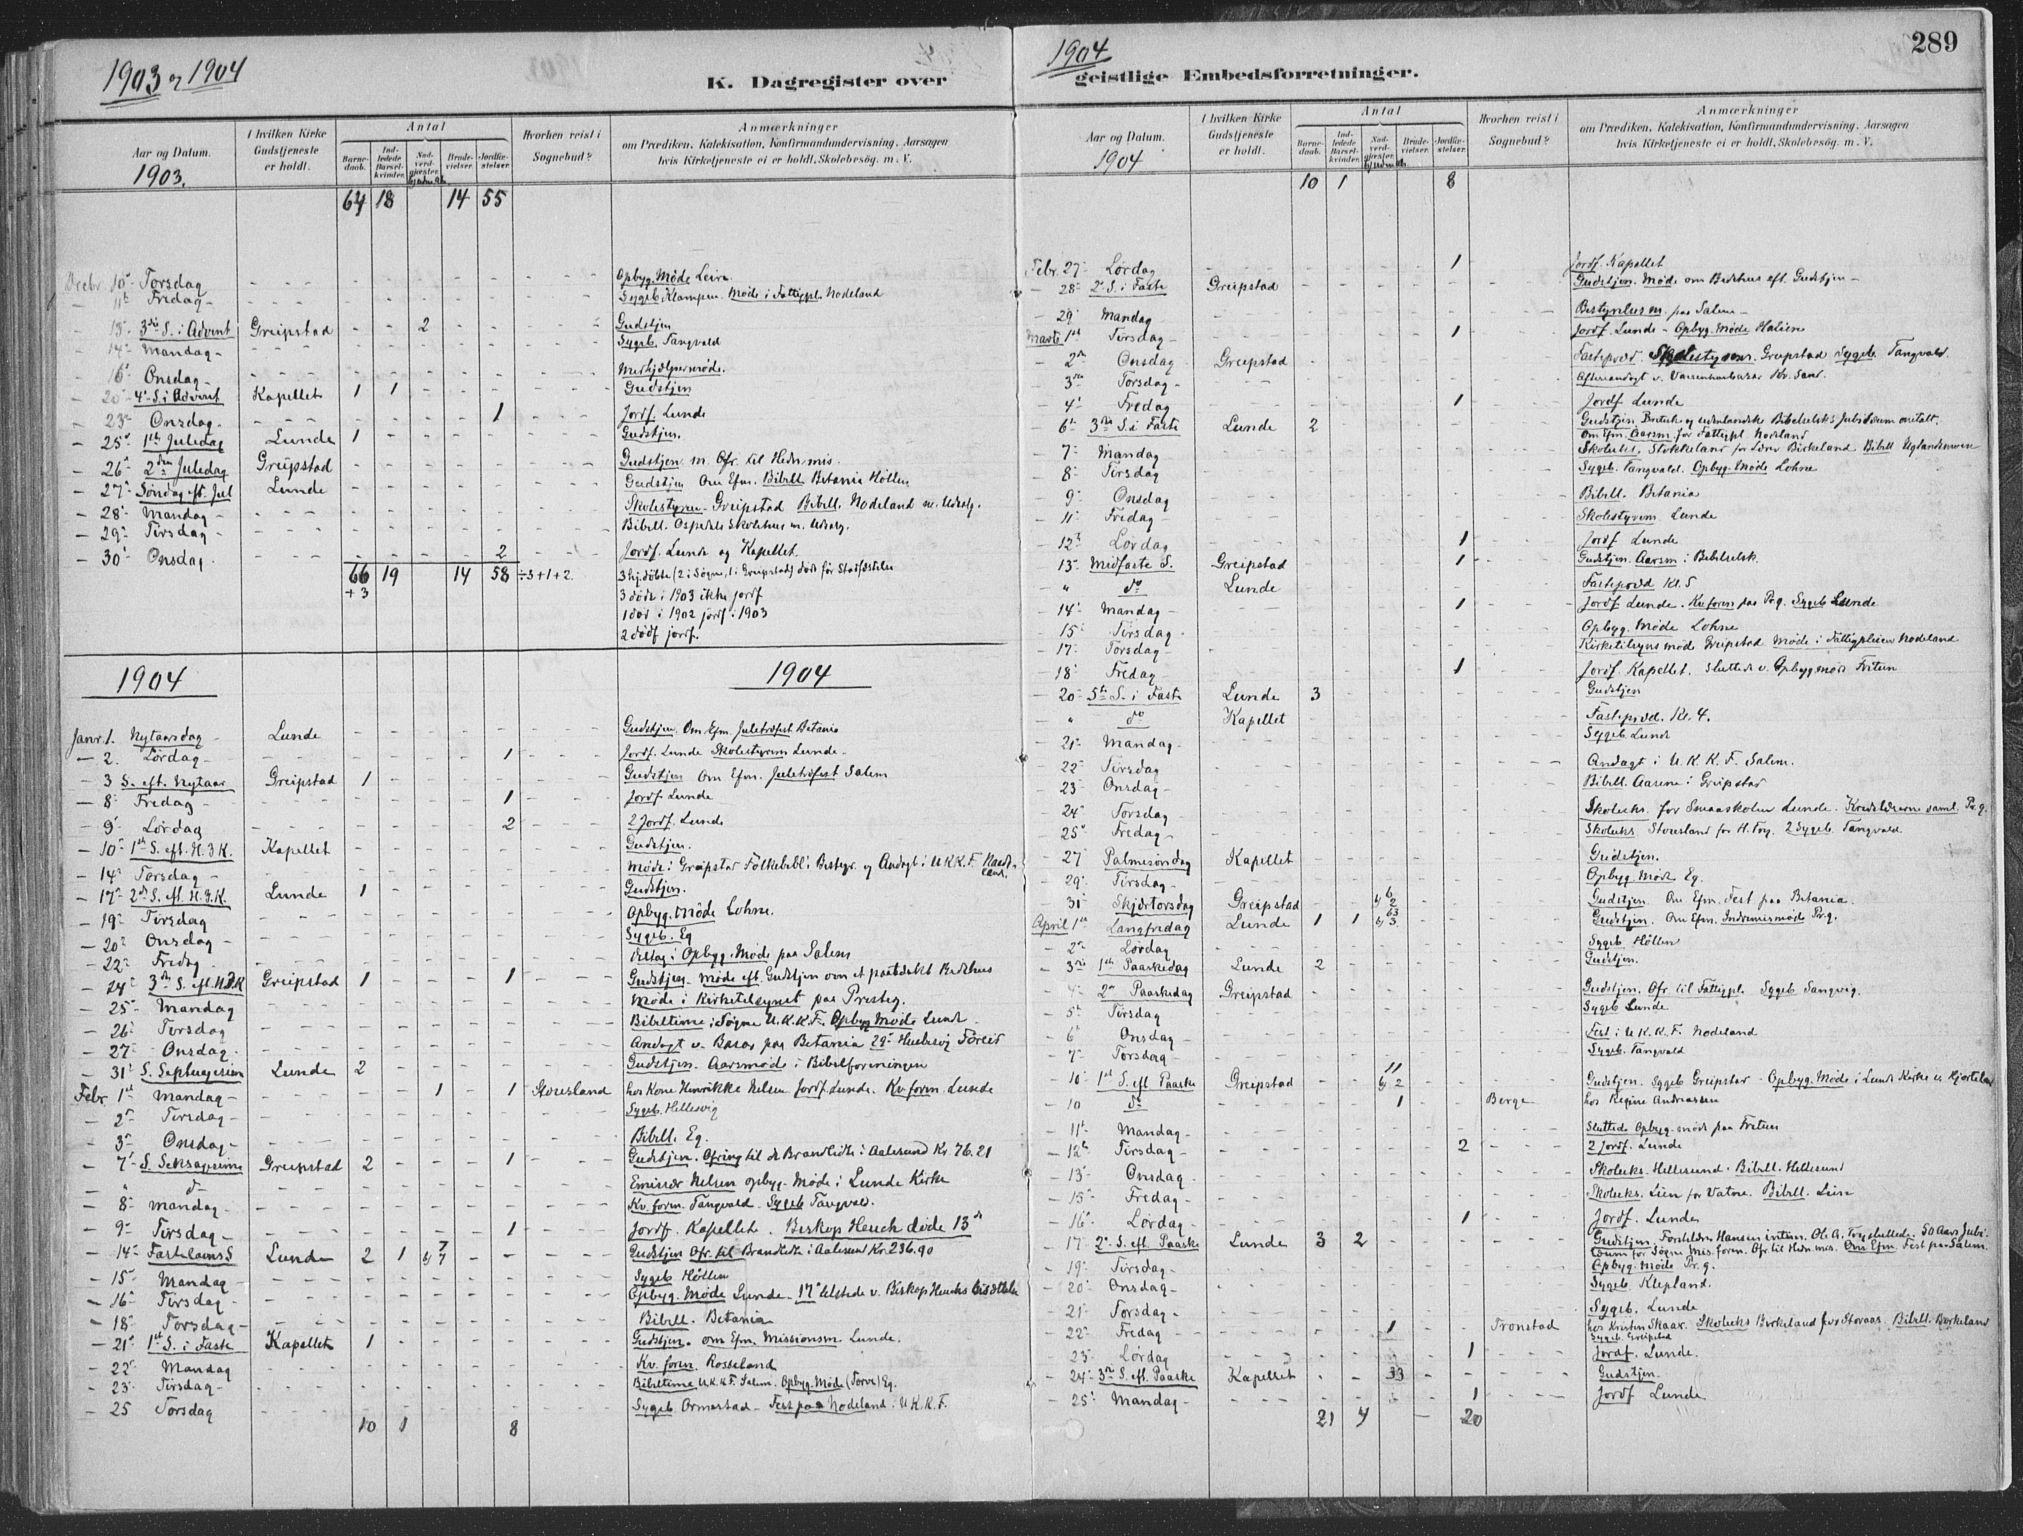 1903 og 1904
K. Dagregister over
Aar og Datum.
I hvilken Kirke Gudstjeneste er holdt.
Antal
Barnedaab.
Indledede Barselkvinder.
Nadverdgjester.
Brudevielser.
Jordfæstelser.
Hvorhen reist i Sognebud?
Anmærkninger
om Prædiken, Katekisation, Konfirmandundervisning, Aarsagen
hvis Kirketjeneste ei er holdt, Skolebesøg. m. V.
1903.
64 18 14 55
10 Torsdag Opbyg. Møde Leire
11 Fredag Sygeb. Klampen. Møde i Fattigpl. Nodeland
13 3die S. i Advent Greipstad 2 Gudstjen
14 Mandag Sygeb. Tangvald
16 Onsdag
20 4 S. i Advent Kapellet 1 1 Gudstjen
23 Onsdag 1 Jordf. Lunde
25 1ste Juledag Lunde 1 Gudstjen.
26 2den Juledag Greipstad Gudstjen m. Ofr. til Hedn. mis.
27 Søndag eft. Jul Lunde Gudstjen Om Efm. Bibell. Betania Höllen
28 Mandag Skolestyren. Greipstad Bibell. Nodeland m. Udvalg.
29 Tirsdag Bibell. Skolehus m. Udvalg.
30 Onsdag 2 Jordf. Lunde og Kapellet.
66 19 14 58 ÷3+1+2.
+3
3 hj.døbte (2 i Søgne, 1 i Greipstad) døde før Stadfæstelse
3 døde i 1903 ikke jordf
1 død i 1902 jordf. i 1903
2 dødf jordf.
1904 1904
Janr. 1. Nytaarsdag Lunde Gudstjen. Om Efm. Juletræfest Betania
2. Lørdag 1 Jordf. Lunde Skolestyren Lunde
3 S. eft. Nytaar Greipstad 1 Gudstjen Om Efm. Juletræfest Salem
8 Fredag 1 Jordf. Lunde
9 Lørdag 2 2 Jordf. Lunde
10 1ste S. eft. H.3.K. Kapellet Gudstjen.
14 Torsdag Møde i Greipstad Folkebibl. Bestyr. og Andagt i U.K.K.F.
17 2den S. eft. H.3.K. Lunde 1 Gudstjen.
19 Tirsdag Opbyg. Møde Lohne.
20 Onsdag Sygeb. Eg
22 Fredag Deltog i Opbyg. Møde paa Salem
24 3die S. eft. H.3.K Greipstad 1 1 Gudstjen. Møde eft. Gudstjen om et paatænkt Bedehus
25 Mandag Møde i Kirketilsynet paa Presteg.
26 Tirsdag Bibeltime i Søgne U.K.K.F. Opbyg Møde Lunde
27 Onsdag Andagt v. Basar paa Betania
31 S. Septuagesim Lunde 2 Gudstjen. Aarsmøde i Bibelforeningen
Febr 1ste Mandag 1 1 Storesland hos Kone Henrikke Nelsen Jordf. Lunde. Kv. foren. Lunde
2 Tirsdag Sygeb. Hellesvig
3 Onsdag Bibell. Eg.
7 S. Seksagesima Greipstad 2 1 Gudstjen. Ofring til de Brandlidte i Aalesund Kr. 76.21
" do Emissær Nelsen opbyg. Møde i Lunde Kirke
8 Mandag Kv. foren. Tangvald. Sygeb Tangvald.
9 Tirsdag 1 Jordf. Kapellet. Biskop Heuch døde 13de
14 Fastelavns S Lunde 2 1 7 og 7 Gudstjen Ofr. til Brandlidte i Aalesund Kr. 236.90
15 Mandag Sygeb Höllen
16 Tirsdag Opbyg. Møde Lunde. 17 tilstede v. Biskop Heuchs Bisættelse
18 Torsdag Bibell. Betania
21 1ste S. i Faste Kapellet 1 Gudstjen. om Efm. Missionsm Lunde.
22 Mandag Kv. foren. Rosseland
23 Tirsdag Bibeltime U.K.K.F. Salem. Opbyg. Møde (Torve) Eg.
25 Torsdag Sygeb. Ormestad Fest paa Nodeland. U.K.K.F.
10 1 8
1904
289
geistlige Embedsforretninger.
Aar og Datum.
I hvilken Kirke Gudstjeneste er holdt.
Antal
Barnedaab.
Indledede Barselkvinder.
Nadverdgjester.
Brudevielser.
Jordfæstelser.
Hvorhen reist i Sognebud?
Anmærkninger
om Prædiken, Katekisation, Konfirmandundervisning, Aarsagen
hvis Kirketjeneste ei er holdt, Skolebesøg. m. V.
1904
10 1 8
Febr. 27 Lørdag 1 Jordf. Kapellet
28 2 S. i Faste Greipstad Gudstjen. Møde om Bedehus eft. Gudstjen
29 Mandag Bestyrelsesm. paa Salem
Marts 1ste Tirsdag 1 Jordf. Lunde - Opbyg. Møde Haliene
2den Onsdag Greipstad Fastepræd. Skolestyrem. Greipstad Sygeb. Tangvald.
3die Torsdag Aftenandagt v.
4 Fredag 1 Jordf Lunde
6te 3die S. i Faste Lunde 2 Gudstjen. Britiske og udenlandske Bibelselsk. Jubilæum omtalt.
Om Efm. Aarsm. for Fattigpl Nodeland
7 Mandag Skoleeks. Stokkeland for Lærer Birkeland Bibell
8 Tirsdag Sygeb. Tangvald. Opbyg. Møde Lohne
9 Onsdag Bibell. Betania
11 Fredag Skolestyrem. Lunde
12 Lørdag 1 Jordf Lunde
13 Midfaste S. Greipstad 1 Gudstjen. Aarsm i Bibelselsk.
" do Lunde Fastepræd Kl. 5
14 Mandag 1 Jordf Lunde. Kv. foren paa Pr.g. Sygeb Lunde
15 Tirsdag Opbyg. Møde Lohne
17 Torsdag Kirketilsyns møde Greipstad Møde i Fattigpleien Nodeland
18 Fredag 1 Jordf. Kapellet. Sluttede v. Opbyg møde Fritun
20 5te S. i Faste Lunde 3 Gudstjen
" do Kapellet Fastepræd. Kl. 4.
21 Mandag Sygeb Lunde
22 Tirsdag Andagt i U.K.K.F. Salem.
23 Onsdag Bibell. Aarene i Greipstad
24 Torsdag Skoleeks. for Smaaskolen Lunde. Kredslærerne saml. Pr.g.
25 Fredag Skoleeks. Storesland for H. Try. 2 Sygeb. Tangvald.
27 Palmesøndag Kapellet Gudstjen.
29 Tirsdag Opbyg. Møde Eg.
31 Skjærtorsdag Greipstad 6 og 2 Gudstjen. Om Efm. Fest paa Betania.
April 1ste Langfredag Lunde 1 1 63 og 3 Gudstjen. Om Efm. Indremismøde Pr.g.
2 Lørdag Sygeb Höllen
3 1ste Paaskedag Lunde 2 Gudstjen.
4 2den Paaskedag Greipstad Gudstjen. Ofr til Fattigpl. Sygeb Sangvig.
5 Tirsdag Sygeb Lunde
6 Onsdag Fest i U.K.K.F. Nodeland
7 Torsdag Sygeb. Tangvald
10 1ste S. eft Paaske Greipstad 11 og 2 Gudstjen. Sygeb Greipstad - Opbyg. Møde i Lunde Kirke v. Hjorteland
10 do 1 Berge hos Regine Andreassen
11 Mandag Sluttede Opbyg. møde paa Fritun
12 Tirsdag 2 2 Jordf. Lunde
13 Onsdag Skoleeks. Hellesund. Bibell. Hellesund
15 Fredag Skoleeks. Lien for Vatne. Bibell. Lien
16 Lørdag 1 Jordf. Lunde
17 2 S. eft. Paaske Lunde 3 2 Gudstjen. 50 Aars Jubilæum for Søgne Mis. foren. Ofr. til Hedn. mis. Om Efm. Fest paa Salem.
19 Tirsdag Opbyg. Møde Pr.g.
20 Onsdag Sygeb. Klepland.
21 Torsdag Sygeb. Lunde
22 Fredag 1 Tronstad hos Kristen Skaar. Skoleeks Birkeland for Storaas. Bibell. Birkeland
Sygeb Greipstad
23 Lørdag 1 Jordf. Lunde.
24 3die S. eft. Paaske Kapellet 33 Gudstjen.
25 Mandag 1 Jordf Lunde
21 4 - 20